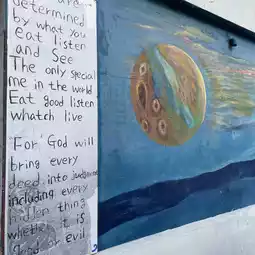 are
determined
by what you
eat listen
and See
The only special
me in the world
Eat good listen
whatch live
"For God will
bring every
deed into judgement
including every
hidden thing
whether it is
good or evil